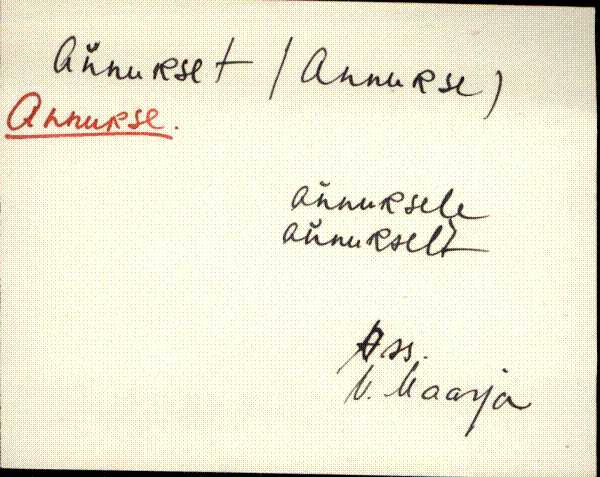 Aňnukset (Annukse)
Annukse.
aňnuksele
aňnukselt
Ass.
V. Maarja